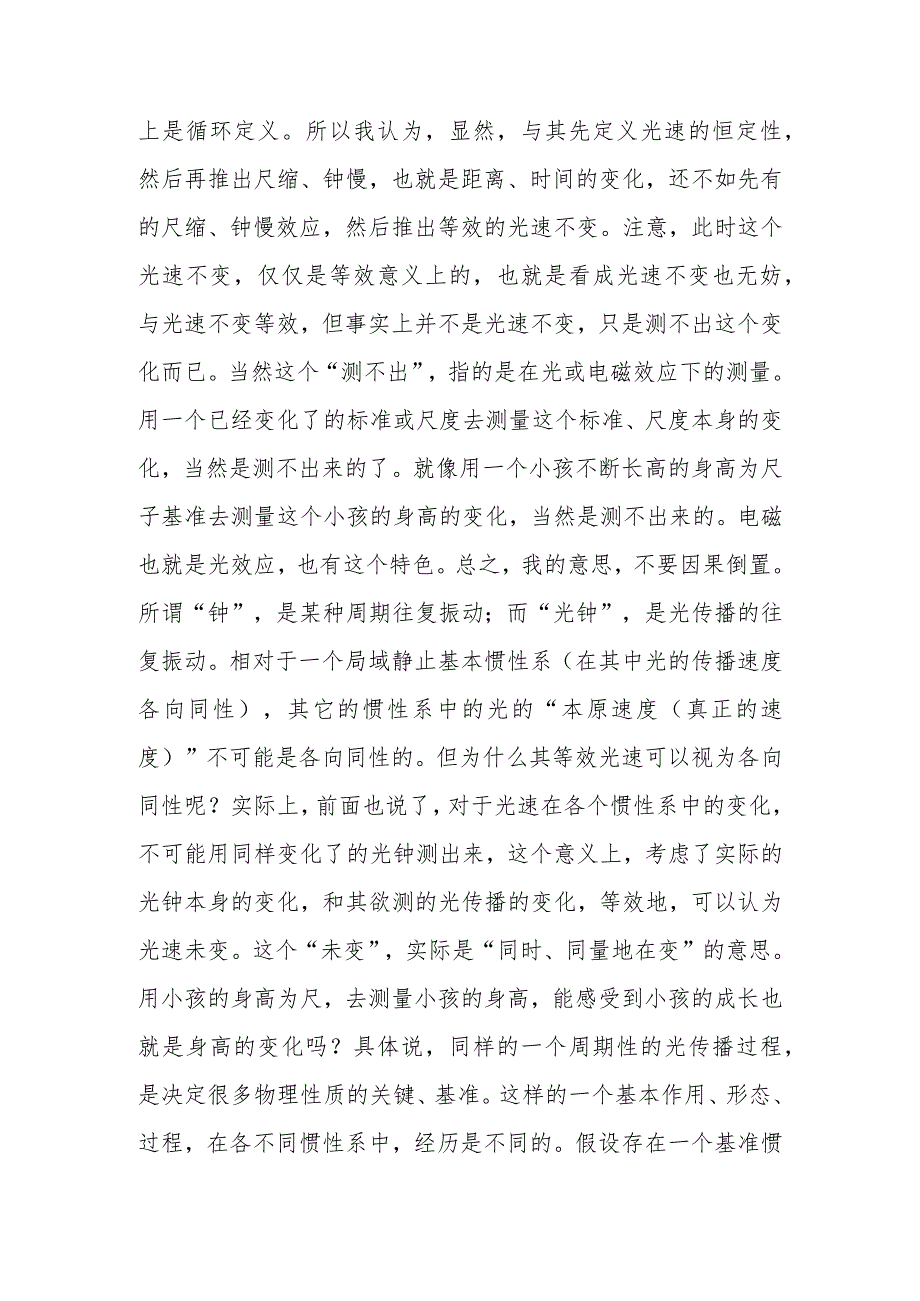 上是循环定义。所以我认为，显然，与其先定义光速的恒定性，
然后再推出尺缩、钟慢，也就是距离、时间的变化，还不如先有
的尺缩、钟慢效应，然后推出等效的光速不变。注意，此时这个
光速不变，仅仅是等效意义上的，也就是看成光速不变也无妨，
与光速不变等效，但事实上并不是光速不变，只是测不出这个变
化而已。当然这个“测不出”，指的是在光或电磁效应下的测量。
用一个已经变化了的标准或尺度去测量这个标准、尺度本身的变
化，当然是测不出来的了。就像用一个小孩不断长高的身高为尺
子基准去测量这个小孩的身高的变化，当然是测不出来的。电磁
也就是光效应，也有这个特色。总之，我的意思，不要因果倒置。
所谓“钟”，是某种周期往复振动；而“光钟”，是光传播的往
复振动。相对于一个局域静止基本惯性系（在其中光的传播速度
各向同性），其它的惯性系中的光的“本原速度（真正的速
度）”不可能是各向同性的。但为什么其等效光速可以视为各向
同性呢？实际上，前面也说了，对于光速在各个惯性系中的变化，
不可能用同样变化了的光钟测出来，这个意义上，考虑了实际的
光钟本身的变化，和其欲测的光传播的变化，等效地，可以认为
光速未变。这个“未变”，实际是“同时、同量地在变”的意思。
用小孩的身高为尺，去测量小孩的身高，能感受到小孩的成长也
就是身高的变化吗？具体说，同样的一个周期性的光传播过程，
是决定很多物理性质的关键、基准。这样的一个基本作用、形态、
过程，在各不同惯性系中，经历是不同的。假设存在一个基准惯